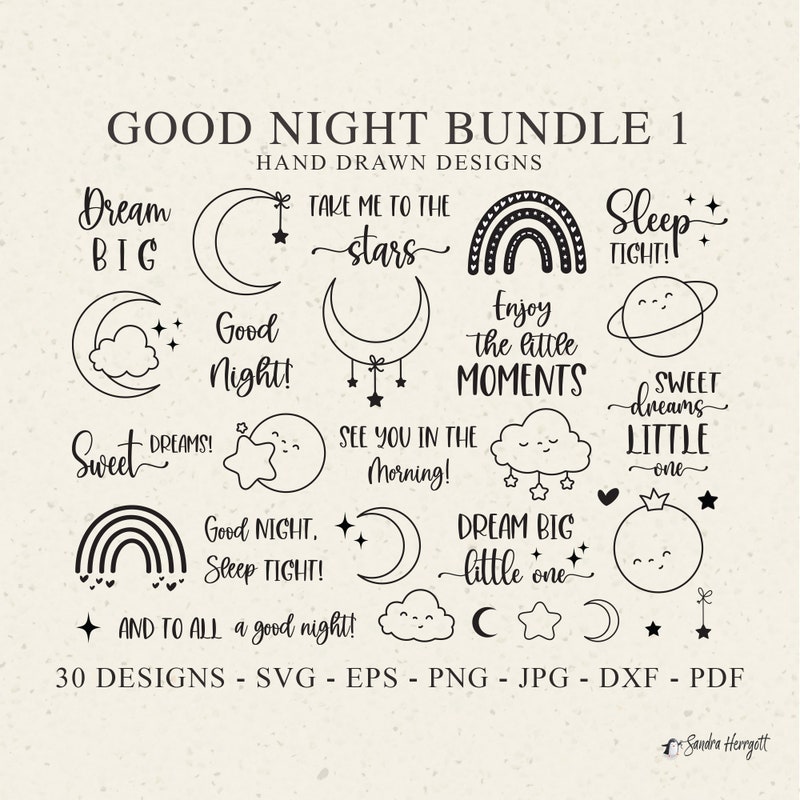 GOOD NIGHT BUNDLE 1
HAND DRAWN DESIGNS
Dream
BIG
TAKE ME TO THE
stars
Sleep
TIGHT!
Good
Night!
Enjoy
the little
MOMENTS
Sweet DREAMS!
SEE YOU IN THE
Morning!
SWEET
dreams
LITTLE
one
Good NIGHT,
Sleep TIGHT!
DREAM BIG
little one
AND TO ALL a good night!
30 DESIGNS - SVG - EPS - PNG - JPG - DXF - PDF
Sandra Herrgott